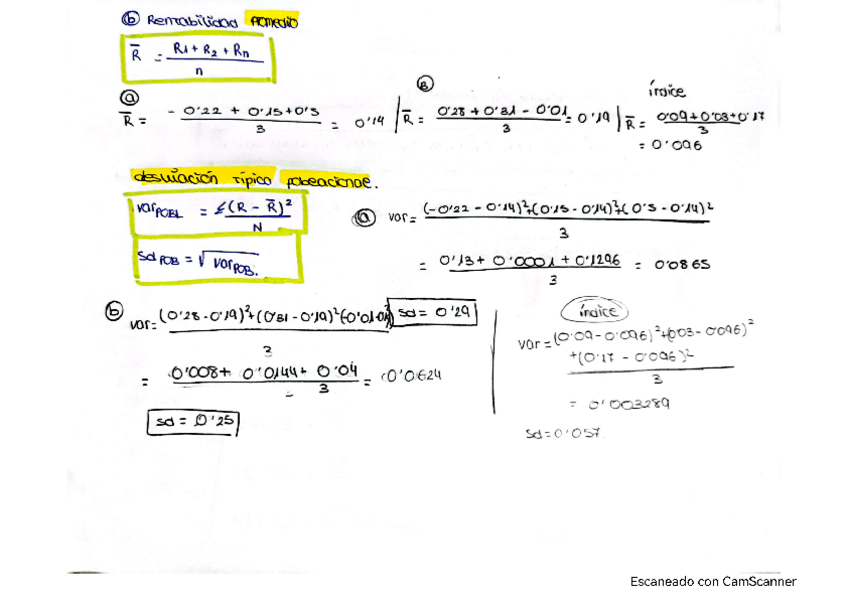 b Rentabilidad promedio
R̄ = R1 + R2 + Rn / n
a
R̄ = - 0'22 + 0'15 + 0'5 / 3 = 0'14
B
R̄ = 0'28 + 0'31 - 0'01 / 3 = 0'19
índice
R̄ = 0'09 + 0'03 + 0'17 / 3
= 0'096
desviación típica poblacional.
varPOBL = Σ(R - R̄)² / N
sdPOB = √varPOB.
a var = (-0'22 - 0'14)² + (0'15 - 0'14)² + (0'5 - 0'14)² / 3
= 0'13 + 0'0001 + 0'1296 / 3 = 0'0865
sd = 0'29
b var = (0'28 - 0'19)² + (0'31 - 0'19)² / 3
= 0'008 + 0'0144 + 0'04 / 3 = 0'0624
sd = 0'25
índice
var = (0'09 - 0'096)² + (0'03 - 0'096)²
+ (0'17 - 0'096)² / 3
= 0'003289
sd = 0'057
Escaneado con CamScanner